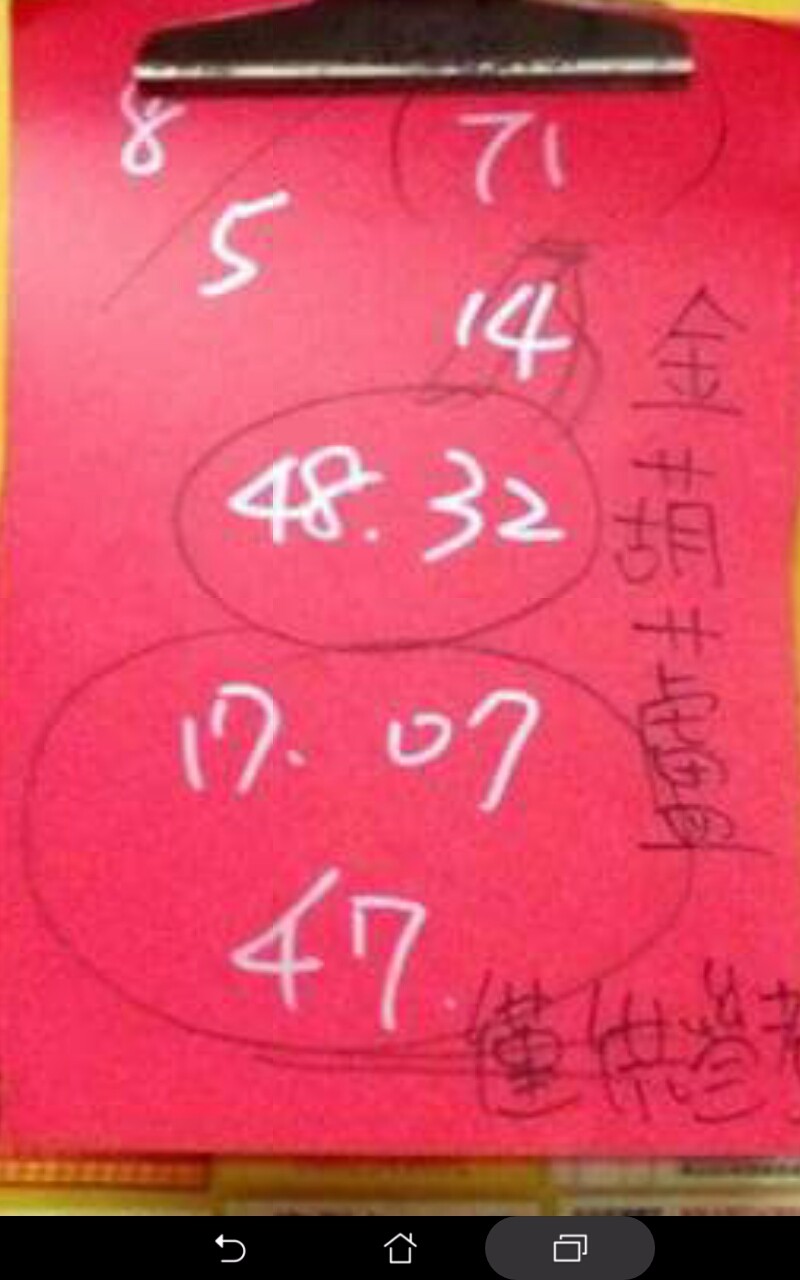 8
71
5
14
48. 32
17. 07
47.
金葫蘆
僅供參考